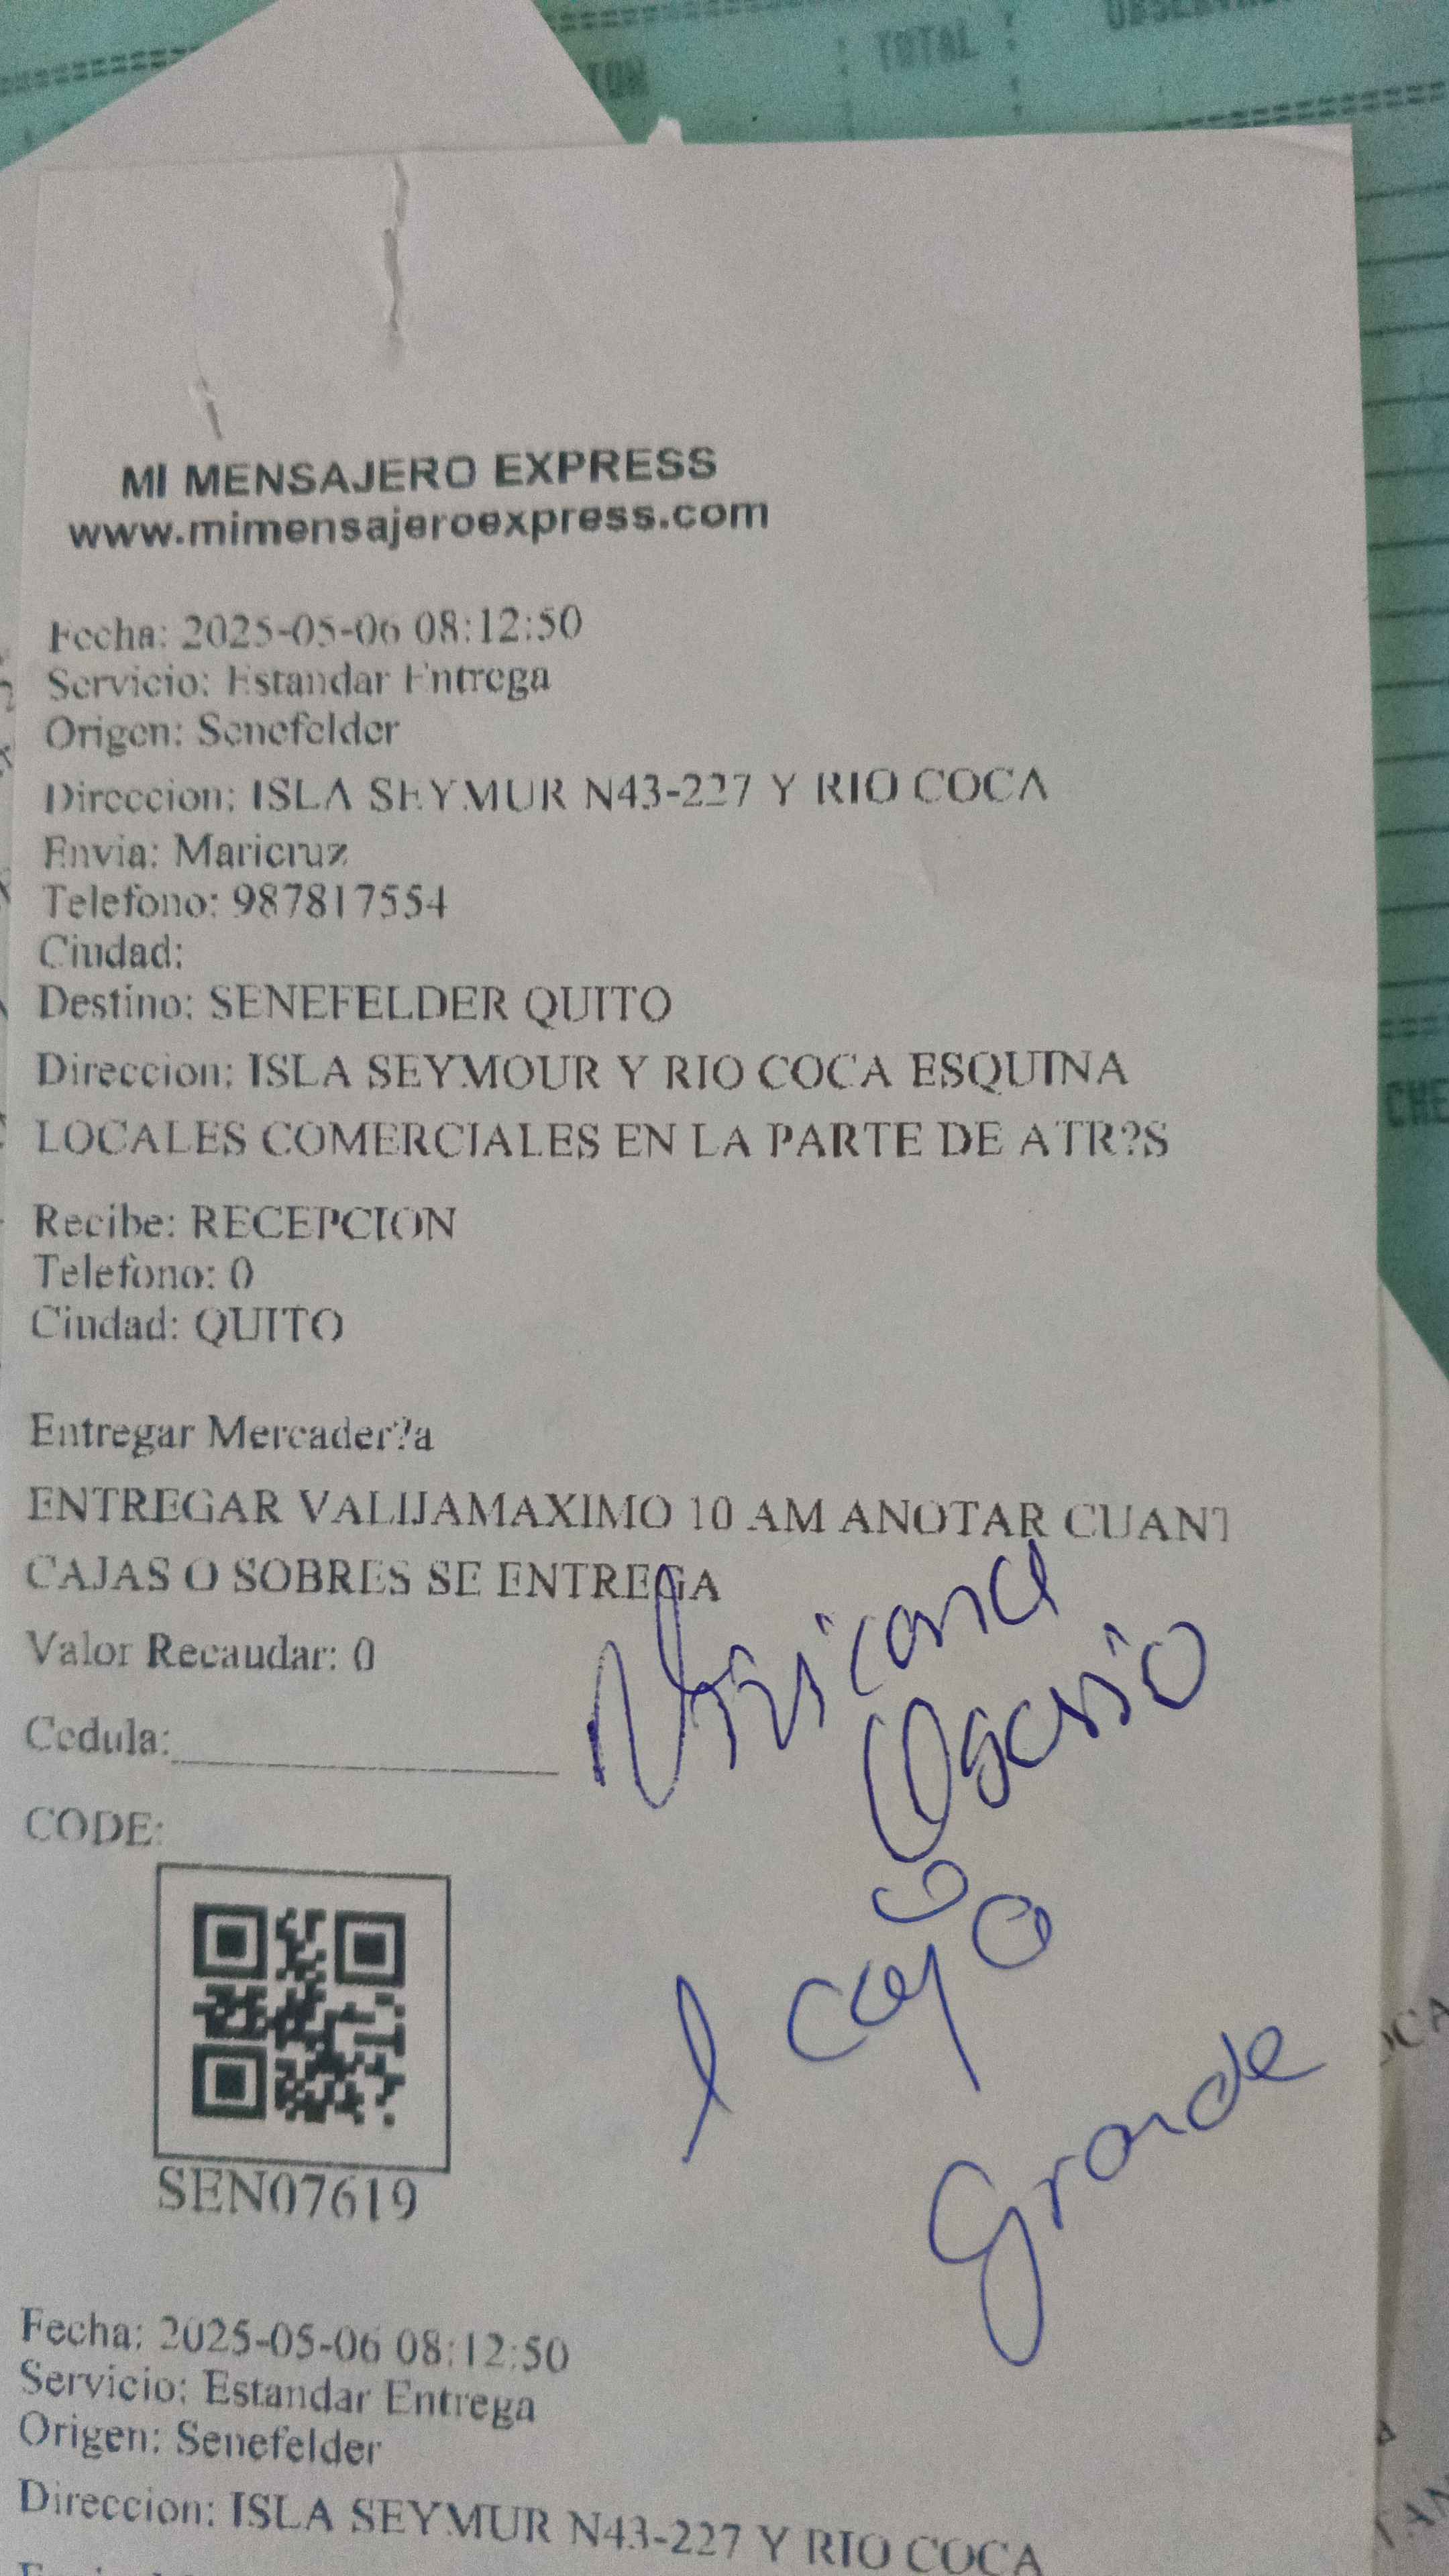 TOTAL
MI MENSAJERO EXPRESS
www.mimensajeroexpress.com
Fecha: 2025-05-06 08:12:50
Servicio: Estandar Entrega
Origen: Senefelder
Direccion: ISLA SEYMUR N43-227 Y RIO COCA
Envia: Maricruz
Telefono: 987817554
Ciudad:
Destino: SENEFELDER QUITO
Direccion: ISLA SEYMOUR Y RIO COCA ESQUINA
LOCALES COMERCIALES EN LA PARTE DE ATR?S
Recibe: RECEPCION
Telefono: 0
Ciudad: QUITO
Entregar Mercader?a
ENTREGAR VALIJAMAXIMO 10 AM ANOTAR CUANT
CAJAS O SOBRES SE ENTREGA
Valor Recaudar: 0
Cedula:
CODE:
1 caja
Grande
SEN07619
Fecha: 2025-05-06 08:12:50
Servicio: Estandar Entrega
Origen: Senefelder
Direccion: ISLA SEYMUR N43-227 Y RIO COCA